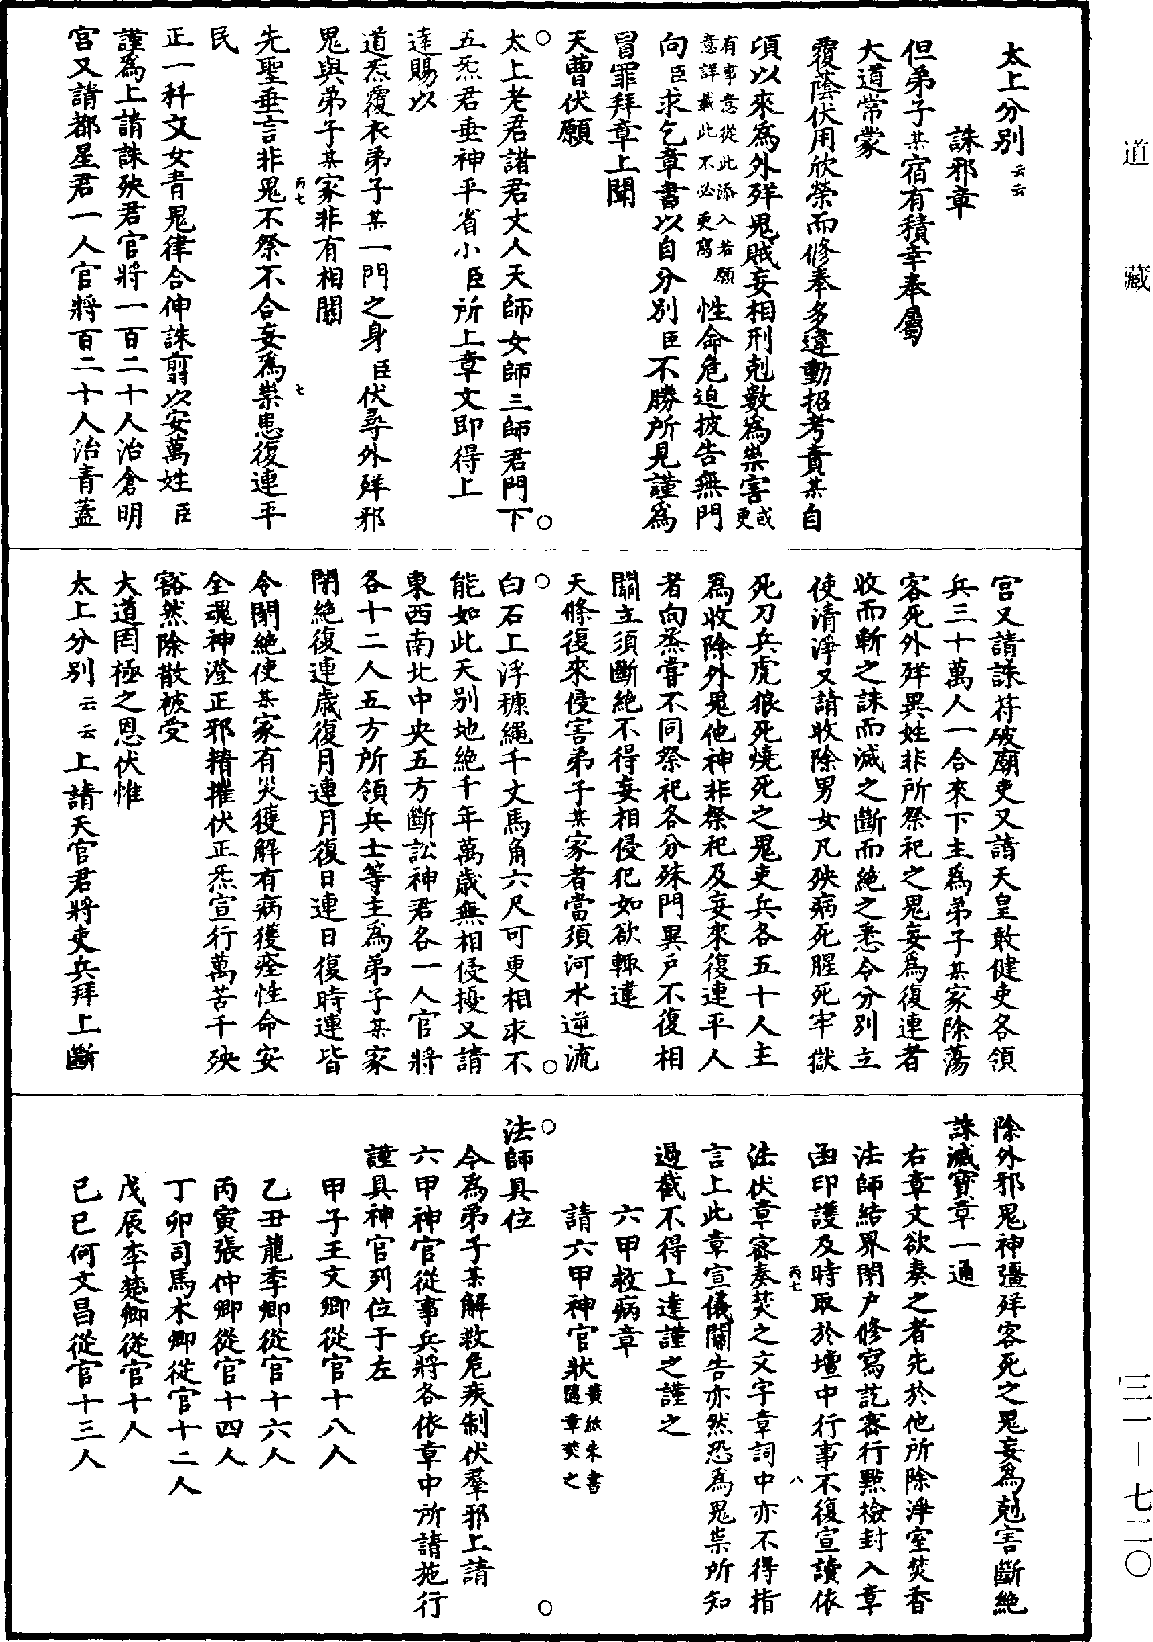 道藏
太上分別云云
誅邪章
但弟子某宿有積幸奉屬
大道常蒙
覆蔭伏用欣榮而修奉多違動招考責某自
頃以來為外殗鬼賊妄相刑剋數為祟害或更
有事意從此添入若願意詳載此不必更寫性命危迫披告無門
向臣求乞章書以自分別臣不勝所見謹為
冒罪拜章上聞
天曹伏願
太上老君諸君丈人天師女師三師君門下
五炁君垂神平省小臣所上章文即得上
達賜以
道炁覆衣弟子某一門之身臣伏尋外殗邪
鬼與弟子某家非有相關
丙七
先聖垂言非鬼不祭不合妄為祟患復連平
七
民
正一科文女青鬼律合伸誅翦以安萬姓臣
謹為上請誅殃君官將一百二十人治倉明
宮又請都星君一人官將百二十人治青蓋
宮又請誅符破廟吏又請天皇敢健吏各領
兵三十萬人一合來下主為弟子某家除蕩
客死外殗異姓非所祭祀之鬼妄為復連者
收而斬之誅而滅之斷而絕之悉令分別立
使清淨又請收除男女凡殃病死腥死牢獄
死刀兵虎狼死燒死之鬼吏兵各五十人主
為收除外鬼他神非祭祀及妄來復連平人
者向烝嘗不同祭祀各分殊門異戶不復相
關立須斷絕不得妄相侵犯如欲輒違
天條復來侵害弟子某家者當須河水逆流
白石上浮糠繩千丈馬角六尺可更相求不
能如此天別地絕千年萬歲無相侵擾又請
東西南北中央五方斷訟神君各一人官將
各十二人五方所領兵士等主為弟子某家
閉絕復連歲復月連月復日連日復時連皆
令閉絕使某家有災獲解有病獲痊性命安
全魂神澄正邪精摧伏正炁宣行萬苦千殃
豁然除散被受
大道罔極之恩伏惟
太上分別云云上請天官君將吏兵拜上斷
除外邪鬼神彊殗客死之鬼妄為剋害斷絕
誅滅寶章一通
右章文欲奏之者先於他所除淨室焚香
法師結界閉戶修寫訖審行點檢封入章
函印護及時取於壇中行事不復宣讀依
丙七
八
法伏章審奏焚之文字章詞中亦不得指
言上此章宣儀關告亦然恐為鬼祟所知
過截不得上達謹之謹之
六甲救病章
請六甲神官狀黃紙朱書隨章焚之
法師具位
今為弟子某解救危疾制伏羣邪上請
六甲神官從事兵將各依章中所請施行
謹具神官列位于左
甲子王文卿從官十八人
乙丑龍季卿從官十六人
丙寅張仲卿從官十四人
丁卯司馬木卿從官十二人
戊辰季楚卿從官十人
己巳何文昌從官十三人
三一—七二〇